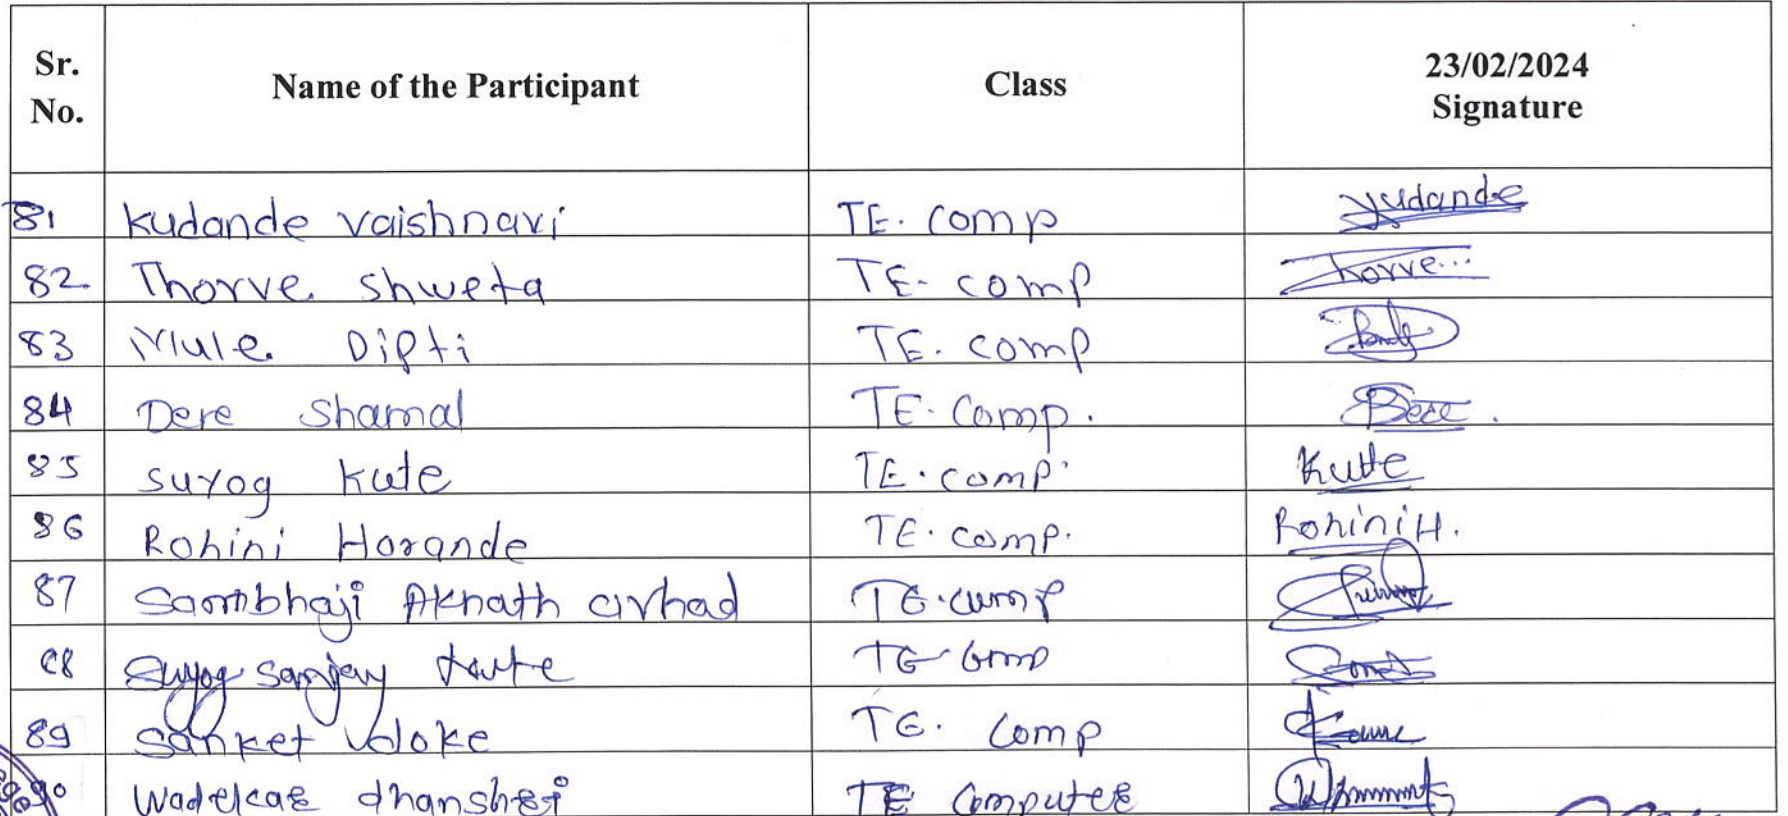 Sr. No. Name of the Participant Class 23/02/2024 Signature
81 Kudande Vaishnavi TE. Comp Kudande
82 Thorve Shweta TE- comp Thorve...
83 Mule Dipti TE. comp
84 Dere Shamal TE. Comp. Dere.
85 Suyog Kute TE. comp. Kute
86 Rohini Horande TE. comp. Rohini H.
87 Sambhaji Aknath Arhad TE. comp
88 Suyog Sanjay Kute TE Comp
89 Sanket TE. Comp
90 Wadekar dhanshri TE Computer